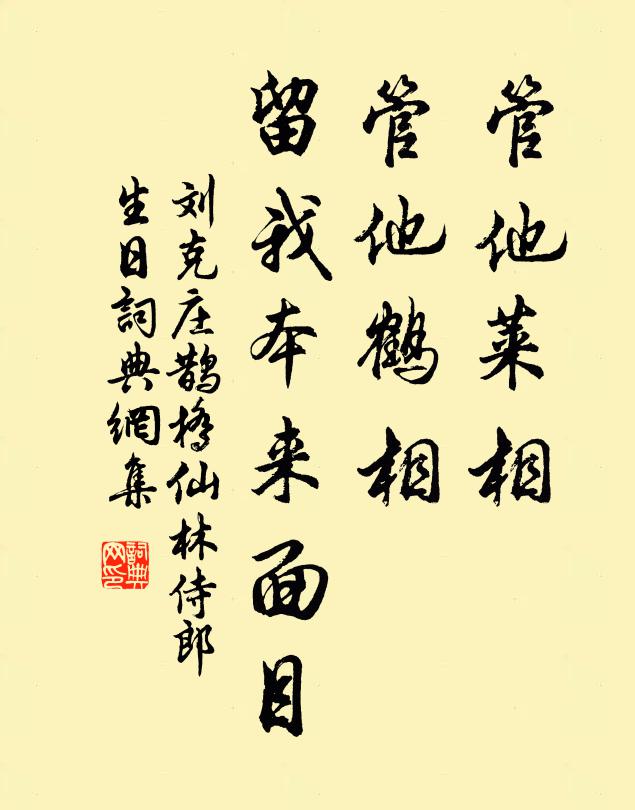 管他菜相
管他鹤相
留我本来面目
刘克庄鹊桥仙林侍郎
生日詞典網集
詞典网印